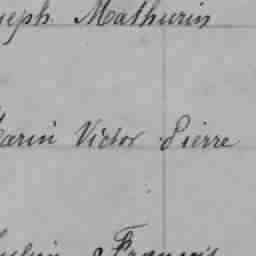 Joseph Mathurin
Marin Victor Pierre
François